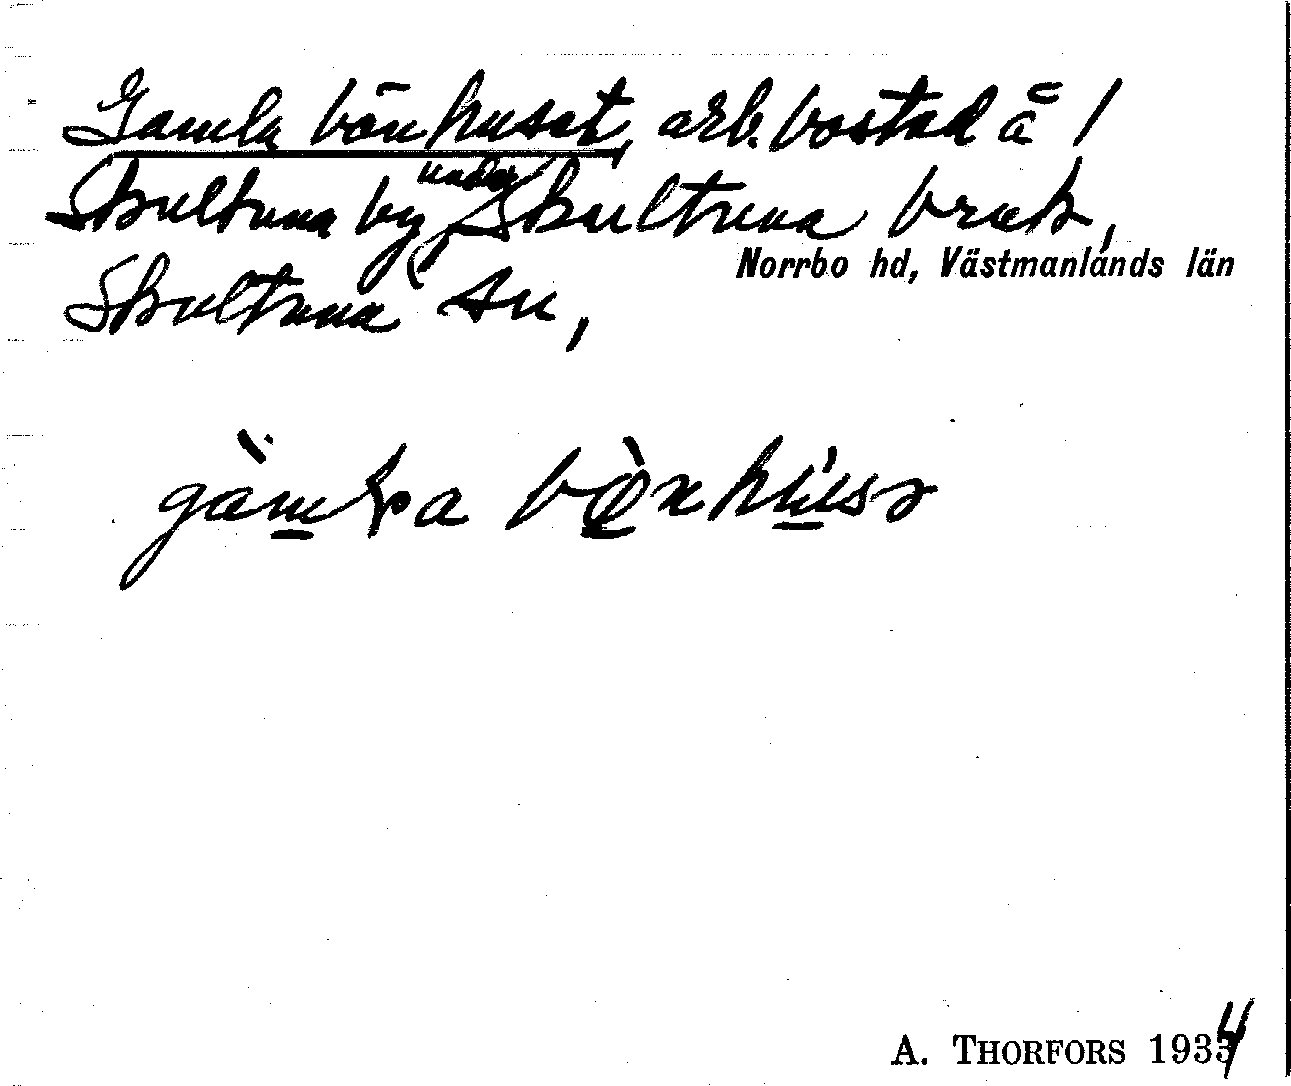 Gamla bönhuset, arb. bostad å /
Skultuna by under Skultuna bruk,
Norrbo hd, Västmanlands län
Skultuna sn,
A. THORFORS 1934